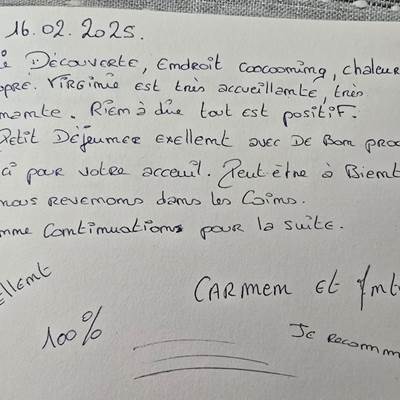 16.02.2025.
Découverte, Emdroit coocooming, chaleur
opré. Virginie est très accueillamte, très
mamte. Riem à dire tout est positif.
Petit Déjeumer exellemt avec De Bom proc
ci pour votre acceuil. Peut être à Biemt
nous revemoms dams les Coims.
mme comtimuatiom pour la suite.
CARMEM Et
ellemt
100%
Je recomm